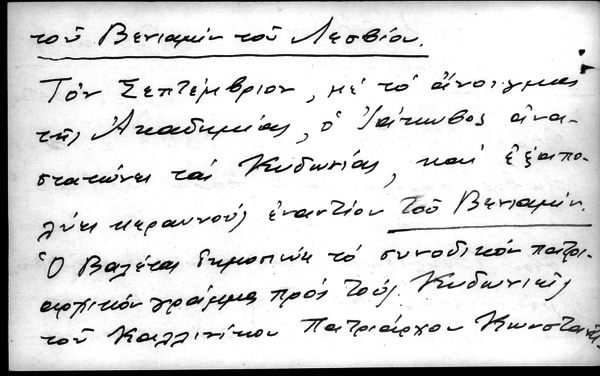 τοῦ Βενιαμὶν τοῦ Λεσβίου.
Τὸν Σεπτέμβριον, μὲ τὸ ἄνοιγμα
τῆς Ἀκαδημίας, ὁ Ἰάκωβος ἀνα-
στατώνει τὰς Κυδωνίας, καὶ ἐξαπο-
λύει κεραυνοὺς ἐναντίον τοῦ Βενιαμίν.
Ὁ Βαλέτας δημοσιεύει τὸ συνοδικὸν πατρι-
αρχικὸν γράμμα πρὸς τοὺς Κυδωνιεῖς
τοῦ Καλλινίκου Πατριάρχου